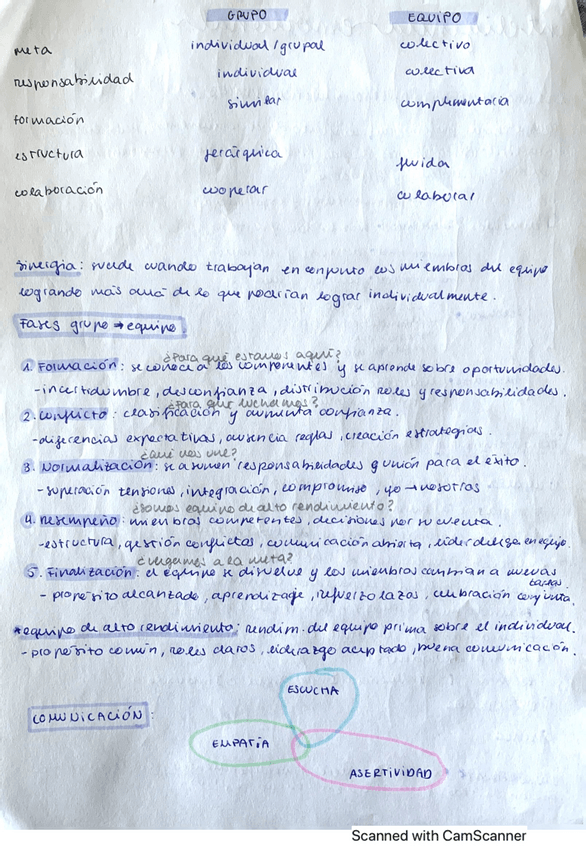 GRUPO EQUIPO
meta individual/grupal colectivo
responsabilidad individual colectiva
formación similar complementaria
estructura jerárquica fluida
colaboración cooperar colaborar
Sinergia: sucede cuando trabajan en conjunto los miembros del equipo
logrando más allá de lo que podrían lograr individualmente.
Fases grupo → equipo
¿Para qué estamos aquí?
1. Formación: se conoce a los componentes y se aprende sobre oportunidades.
- incertidumbre, desconfianza, distribución roles y responsabilidades.
¿Para qué luchamos?
2. Conflicto: clasificación y aumenta confianza.
- diferencias expectativas, ausencia reglas, creación estrategias.
¿Qué nos une?
3. Normalización: se asumen responsabilidades y unión para el éxito.
- superación tensiones, integración, compromiso, yo → nosotros
¿Somos equipo de alto rendimiento?
4. Desempeño: miembros competentes, decisiones por su cuenta.
- estructura, gestión conflictos, comunicación abierta, líder delega en equipo.
¿Llegamos a la meta?
5. Finalización: el equipo se disuelve y los miembros cambian a nuevas
tareas.
- propósito alcanzado, aprendizaje, refuerzo lazos, celebración conjunta.
*equipo de alto rendimiento: rendim. del equipo prima sobre el individual.
- propósito común, roles claros, liderazgo aceptado, buena comunicación.
ESCUCHA
COMUNICACIÓN:
EMPATÍA
ASERTIVIDAD
Scanned with CamScanner